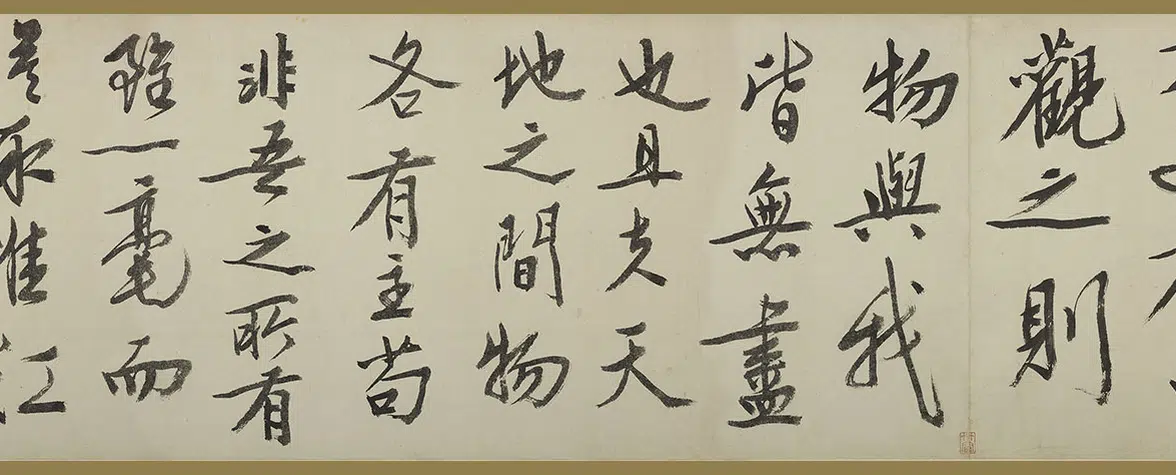 觀之則
物與我
皆無盡
也且夫天
地之間物
各有主苟
非吾之所有
雖一毫而
莫取惟江